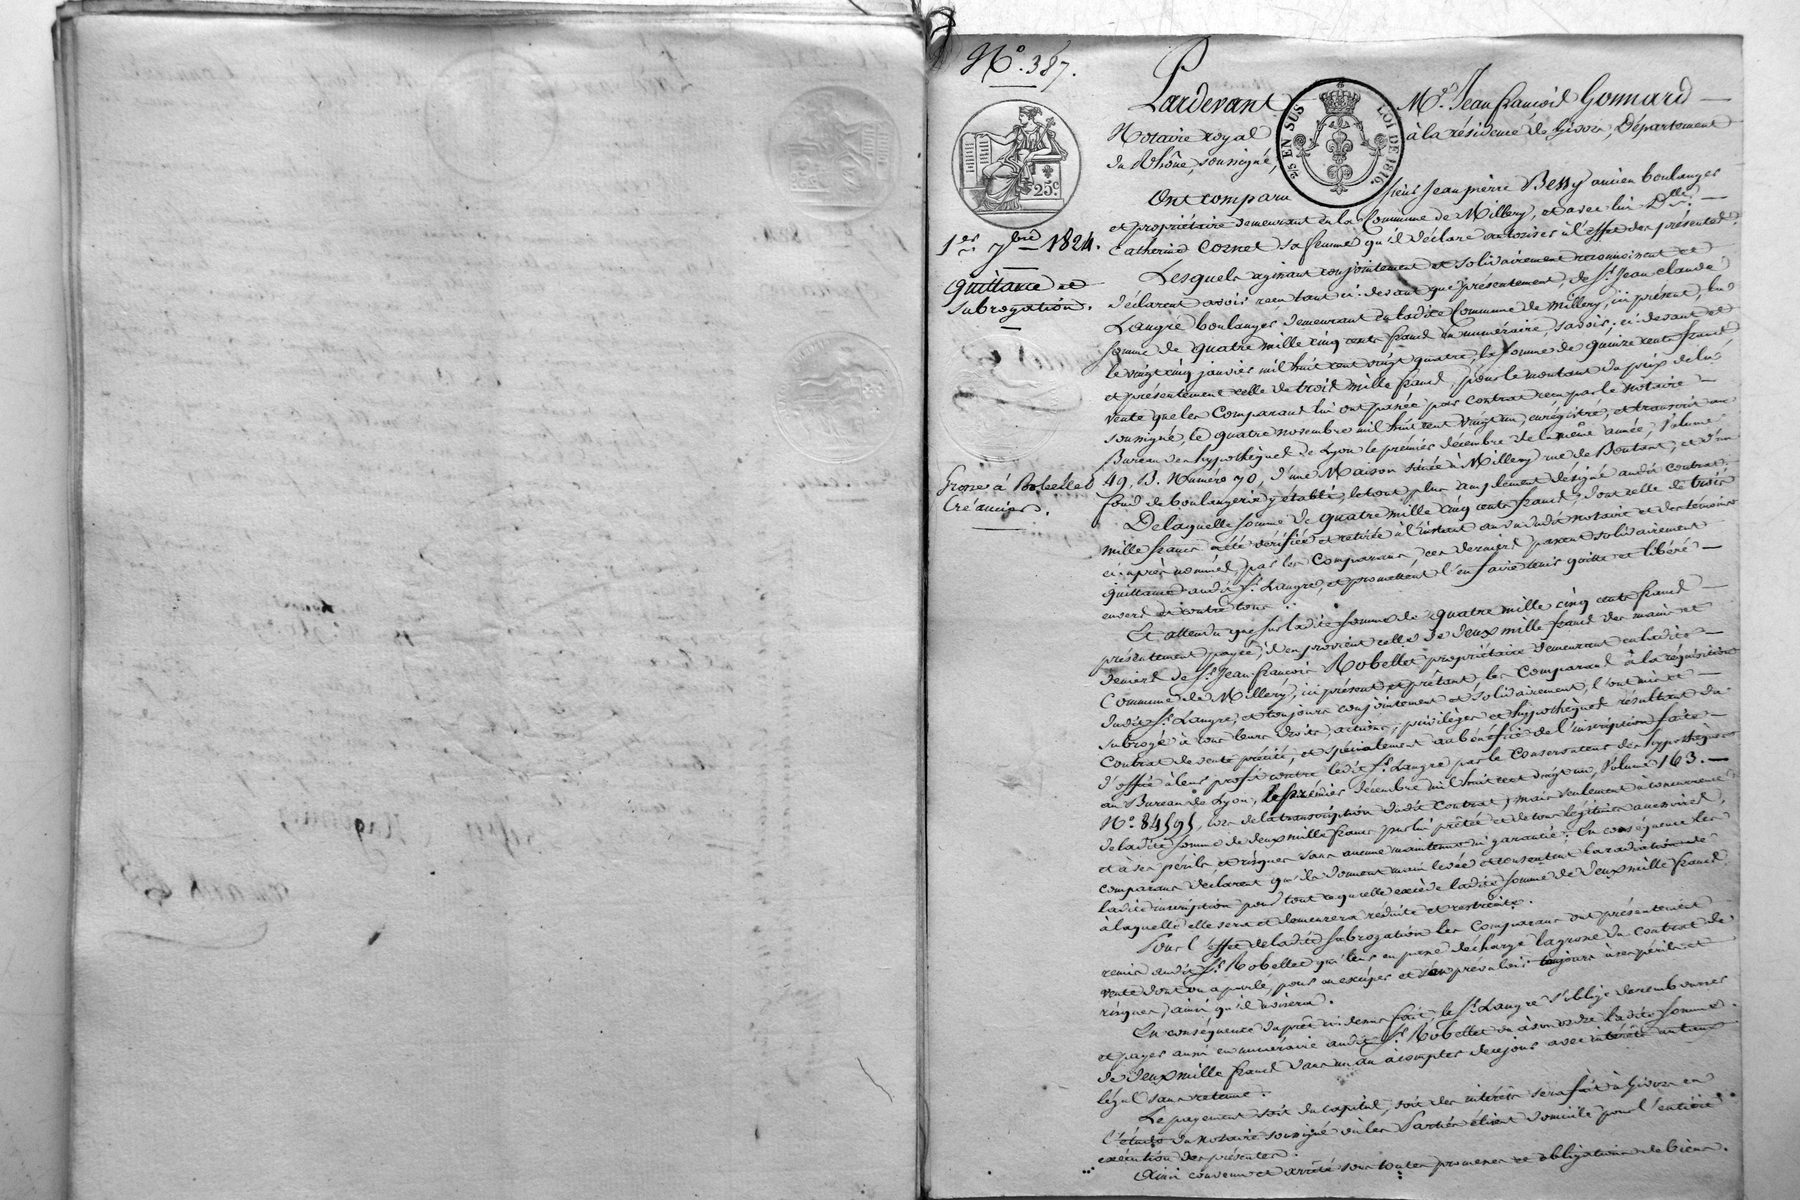 N.º 387.
1.er 7.bre 1824.
Quittance et
subrogation.
Grosse à Robellet
Créancier.
25.c
2/5 EN SUS LOI DE 1816.
Pardevant M.e Jean François Gonnard
Notaire royal à la résidence de Givors, Département
du Rhône, soussigné,
Ont comparu Sieur Jean pierre Bessy ancien boulanger
et propriétaire demeurant en la Commune de Millery, et avec lui D.lle
Catherine Cornet sa femme qu'il déclare autoriser à l'effet des présentes.
Lesquels agissant conjointement et solidairement reconnoissent et
déclarent avoir reçu tant ci-devant que présentement, de S.r Jean claude
Laugre boulanger demeurant en ladite Commune de Millery, ici présent, la
somme de quatre mille cinq cents francs en numéraire, savoir; ci-devant et
le vingt cinq janvier mil huit cent vingt quatre, la somme de quinze cents francs
et présentement celle de trois mille francs, pour le montant du prix de la
vente que les Comparans lui ont passée par contrat reçu par le notaire
soussigné, le quatre novembre mil huit cent vingt un, enregistré, et transcrit au
Bureau des hypothèques de Lyon le premier décembre de la même année, Volume
49, B. Numéro 70, d'une Maison située à Millery rue de Boutant, et d'un
fond de boulangerie y établi, le tout plus amplement désigné audit contrat.
De laquelle somme de quatre mille cinq cents francs, dont celle de trois
mille francs a été vérifiée et retirée à l'instant au vu dudit notaire et des témoins
ci-après nommés, par les Comparans, ces derniers passent solidairement
quittance audit S.r Laugre, et promettent l'en faire tenir quitte et libéré
envers et contre tous.
Et attendu que sur ladite somme de quatre mille cinq cents francs
présentement payée, il en provient celle de deux mille francs des mains et
deniers de S.r Jean François Robellet propriétaire demeurant en ladite
Commune de Millery, ici présent et prêtant, les Comparans à la réquisition
dudit S.r Laugre, et toujours conjointement et solidairement, l'ont mis et
subrogé à tous leurs droits, actions, privilèges et hypothèques résultant du
Contrat de vente précité, et spécialement au bénéfice de l'inscription faite
d'office à leur profit contre ledit S.r Laugre par le Conservateur des hypothèques
au Bureau de Lyon, le premier décembre mil huit cent vingt un, Volume 163.
N.º 84595, lors de la transcription dudit contrat, mais seulement à concurrence
de ladite somme de deux mille francs par lui prêtée et de tous légitimes accessoires,
et à ses périls et risques sans aucune maintenue ni garantie. En conséquence les
comparans déclarent qu'ils donnent main levée et consentent la radiation de
ladite inscription pour tout ce qu'elle excède ladite somme de deux mille francs
à laquelle elle sera et demeurera réduite et restreinte.
Pour l'effet de ladite subrogation les Comparans ont présentement
remis audit S.r Robellet qui leur en passe décharge la grosse du contrat de
vente dont on a parlé, pour en exciper et s'en prévaloir toujours à ses périls et
risques, ainsi qu'il avisera.
En conséquence du prêt ci-dessus fait, le S.r Laugre s'oblige de rembourser
et payer aussi en numéraire audit S.r Robellet ou à son ordre ladite somme
de deux mille francs dans un an à compter de ce jour avec intérêts au taux
légal sans retenue.
Le payement soit du capital, soit des intérêts sera fait à Givors en
l'étude du notaire soussigné où les Parties élisent domicile pour l'entière
exécution des présentes.
Ainsi convenu et arrêté sous toutes promesses et obligations de biens.